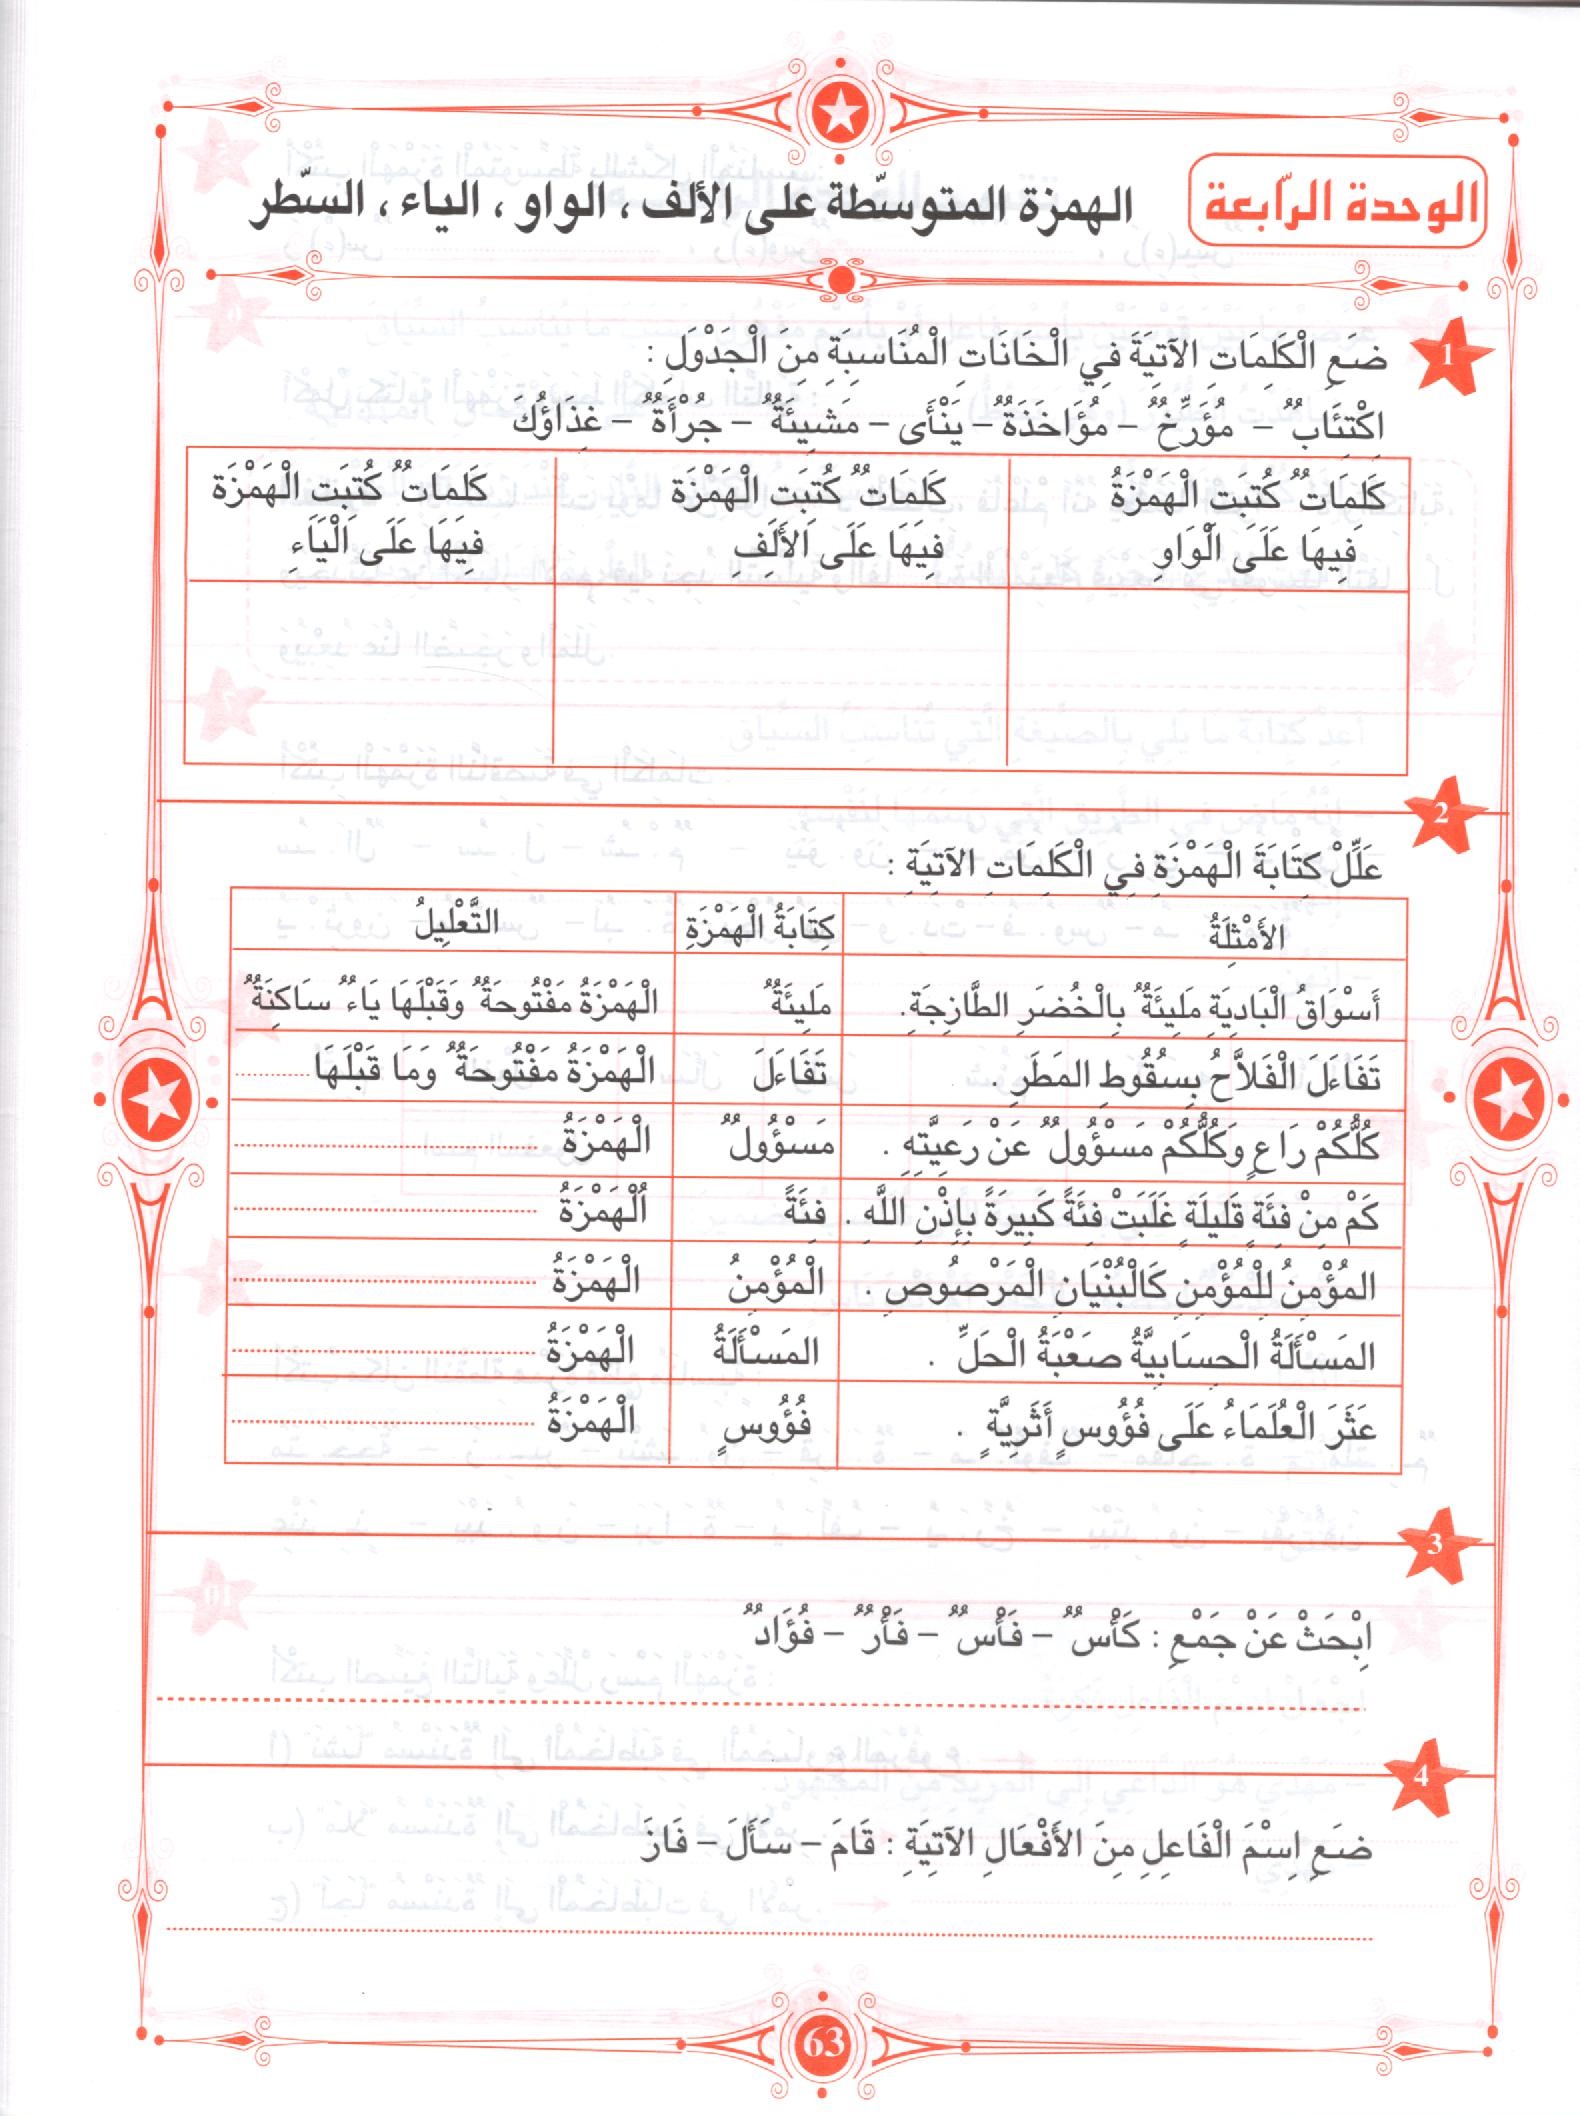 الوحدة الرّابعة
الهمزة المتوسّطة على الألف ، الواو ، الياء ، السّطر
1
ضَعِ الْكَلِمَاتِ الآتِيَةَ فِي الْخَانَاتِ الْمُنَاسِبَةِ مِنَ الْجَدْوَلِ :
اِكْتِئَابٌ – مُؤَرِّخٌ – مُؤَاخَذَةٌ – يَنْأَى – مَشِيئَةٌ – جُرْأَةٌ – غِذَاؤُكَ
كَلِمَاتٌ كُتِبَتِ الْهَمْزَةُ فِيهَا عَلَى الْوَاوِ
كَلِمَاتٌ كُتِبَتِ الْهَمْزَة فِيهَا عَلَى الأَلِفِ
كَلِمَاتٌ كُتِبَتِ الْهَمْزَة فِيهَا عَلَى الْيَاءِ
2
عَلِّلْ كِتَابَةَ الْهَمْزَةِ فِي الْكَلِمَاتِ الآتِيَةِ :
الأَمْثِلَةُ كِتَابَةُ الْهَمْزَةِ التَّعْلِيلُ
أَسْوَاقُ الْبَادِيَةِ مَلِيئَةٌ بِالْخُضَرِ الطَّازِجَةِ. مَلِيئَةٌ الْهَمْزَةُ مَفْتُوحَةٌ وَقَبْلَهَا يَاءٌ سَاكِنَةٌ
تَفَاءَلَ الْفَلاَّحُ بِسُقُوطِ المَطَرِ . تَفَاءَلَ الْهَمْزَةُ مَفْتُوحَةٌ وَمَا قَبْلَهَا ..........
كُلُّكُمْ رَاعٍ وَكُلُّكُمْ مَسْؤُولٌ عَنْ رَعِيَّتِهِ . مَسْؤُولٌ الْهَمْزَةُ ..........
كَمْ مِنْ فِئَةٍ قَلِيلَةٍ غَلَبَتْ فِئَةً كَبِيرَةً بِإِذْنِ اللَّهِ . فِئَةً اُلْهَمْزَةُ ..........
المُؤْمِنُ لِلْمُؤْمِنِ كَالْبُنْيَانِ الْمَرْصُوصِ . الْمُؤْمِنُ الْهَمْزَةُ ..........
المَسْأَلَةُ الْحِسَابِيَّةُ صَعْبَةُ الْحَلِّ . المَسْأَلَةُ الْهَمْزَةُ ..........
عَثَرَ الْعُلَمَاءُ عَلَى فُؤُوسٍ أَثَرِيَّةٍ . فُؤُوسٍ الْهَمْزَةُ ..........
3
اِبْحَثْ عَنْ جَمْعِ : كَأْسٌ – فَأْسٌ – فَأْرٌ – فُؤَادٌ
4
ضَعِ اِسْمَ الْفَاعِلِ مِنَ الأَفْعَالِ الآتِيَةِ : قَامَ – سَأَلَ – فَازَ
63